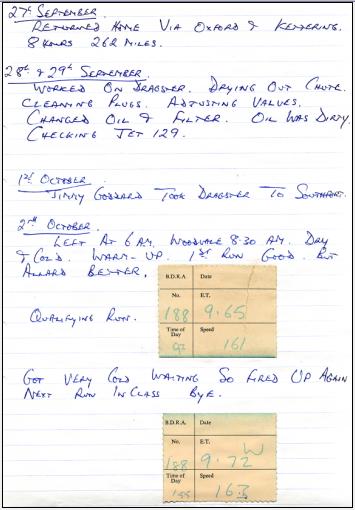 27th September.
Returned Home Via Oxford & Kettering.
8 Hours 262 Miles.
28th & 29th September.
Worked On Dragster. Drying Out Chute.
Cleaning Plugs. Adjusting Valves.
Changed Oil & Filter. Oil Was Dirty.
Checking Jet 129.
1st October
Jimmy Goddard Took Dragster To Southport.
2nd October.
Left At 6 AM. Woodvale 8.30 AM. Dry
& Cold. Warm-Up. 1st Run Good. But
Allard Better.
B.D.R.A. Date
No. E.T.
188 9.65
Qualifying Run.
Time of Day Speed
161
Got Very Cold Waiting So Fired Up Again
Next Run In Class Bye.
B.D.R.A. Date
No. E.T. W
188 9.72
Time of Day Speed
163